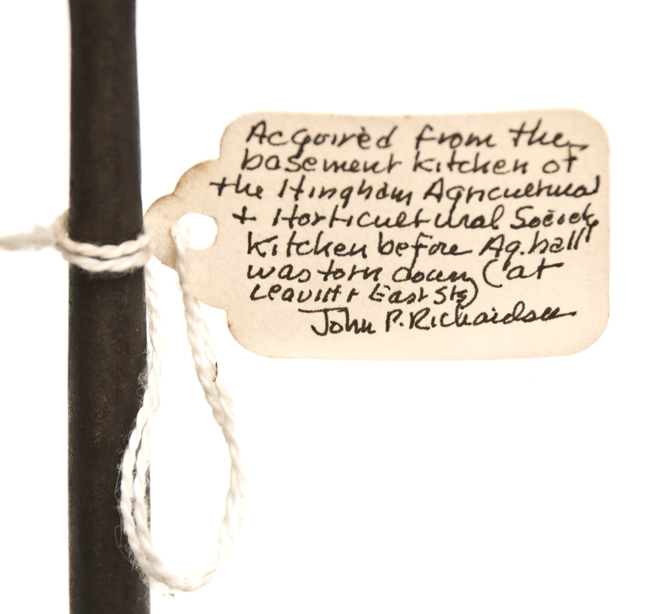 Acquired from the
basement kitchen of
the Hingham Agricultural
+ Horticultural Society
kitchen before Ag. hall
was torn down (at
Leavitt + East Sts)
John P. Richardson